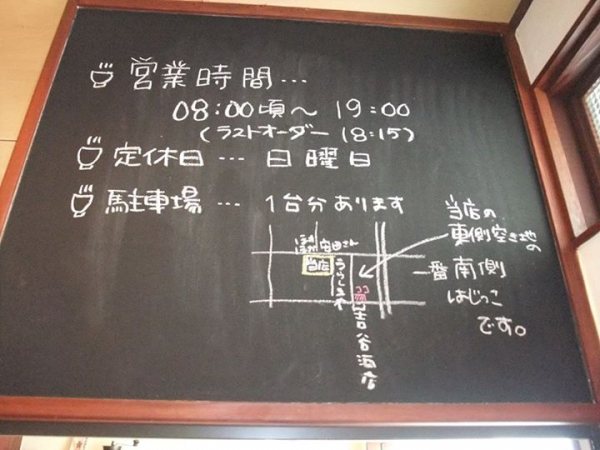 営業時間…
08:00頃～19:00
(ラストオーダー 18:15)
定休日…日曜日
駐車場…1台分あります
当店の
東側空き地の
一番南側
はじっこ
です。
安田さん
当店
うらしまや
ココ
吉谷酒店